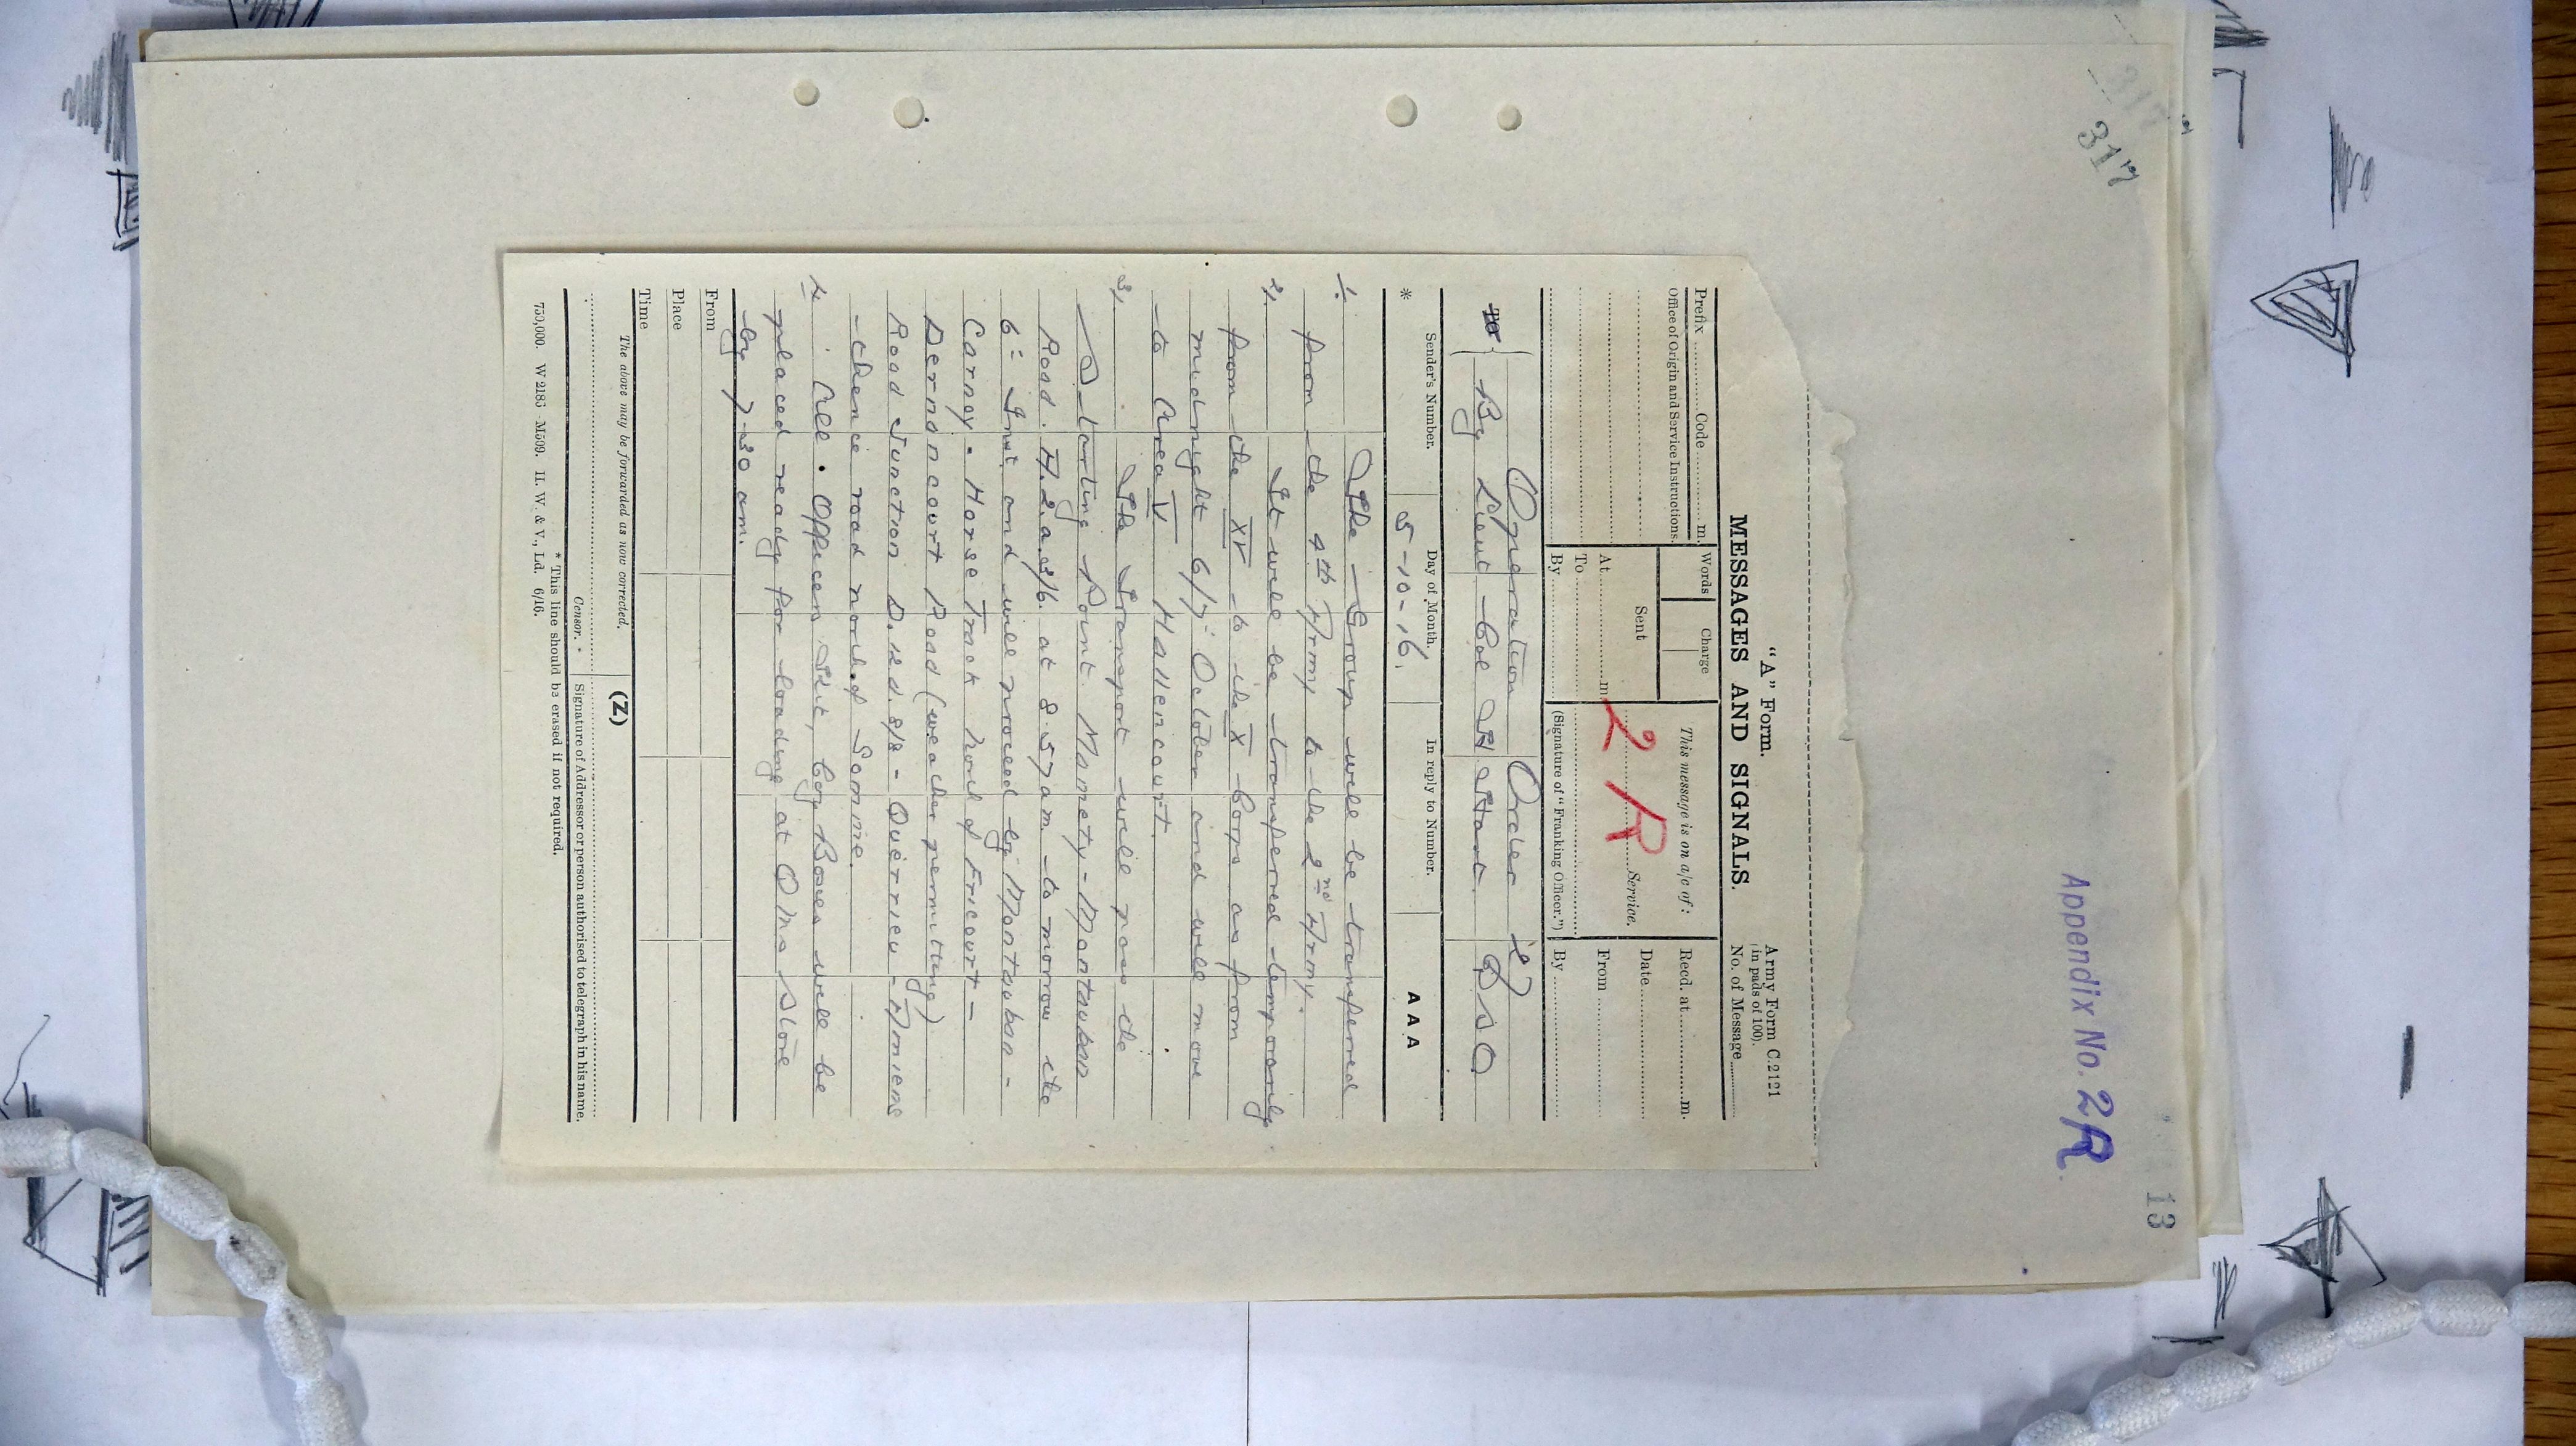 317
13
Appendix No. 2R
"A" Form.
MESSAGES AND SIGNALS.
Army Form C.2121
(in pads of 100).
No. of Message
Prefix Code m.
Office of Origin and Service Instructions.
Words Charge
Sent
At m.
To
By
This message is on a/c of:
Service.
2 R
(Signature of "Franking Officer.")
Recd. at m.
Date
From
By
TO
Operation Order 27
By Lieut-Col H Hart DSO
* Sender's Number. Day of Month. In reply to Number. A A A
5-10-16.
1. The Group will be transferred
from the 4th Army to the 2nd Army.
2, It will be transferred temporarily
from the XV to the X Corps as from
midnight 6/7 October and will move
to Area V Hallencourt.
3, The Transport will pass the
Starting Point. Mametz-Montauban
Road. A.2.a.3/6. at 8.57 am to morrow the
6= Inst and will proceed by Montauban -
Carnoy - Horse Track North of Fricourt -
Dernancourt Road (weather permitting)
Road Junction D.12.d.8/8 - Querrieu - Amiens
- thence road north of Somme.
4 All. Officers Kit, Coy Boxes will be
placed ready for loading at QMs Store
by 7-30 am.
From
Place
Time
The above may be forwarded as now corrected. (Z)
Censor. * Signature of Addressor or person authorised to telegraph in his name.
* This line should be erased if not required.
750,000. W 2185 M509. H. W. & V., Ld. 6/16.